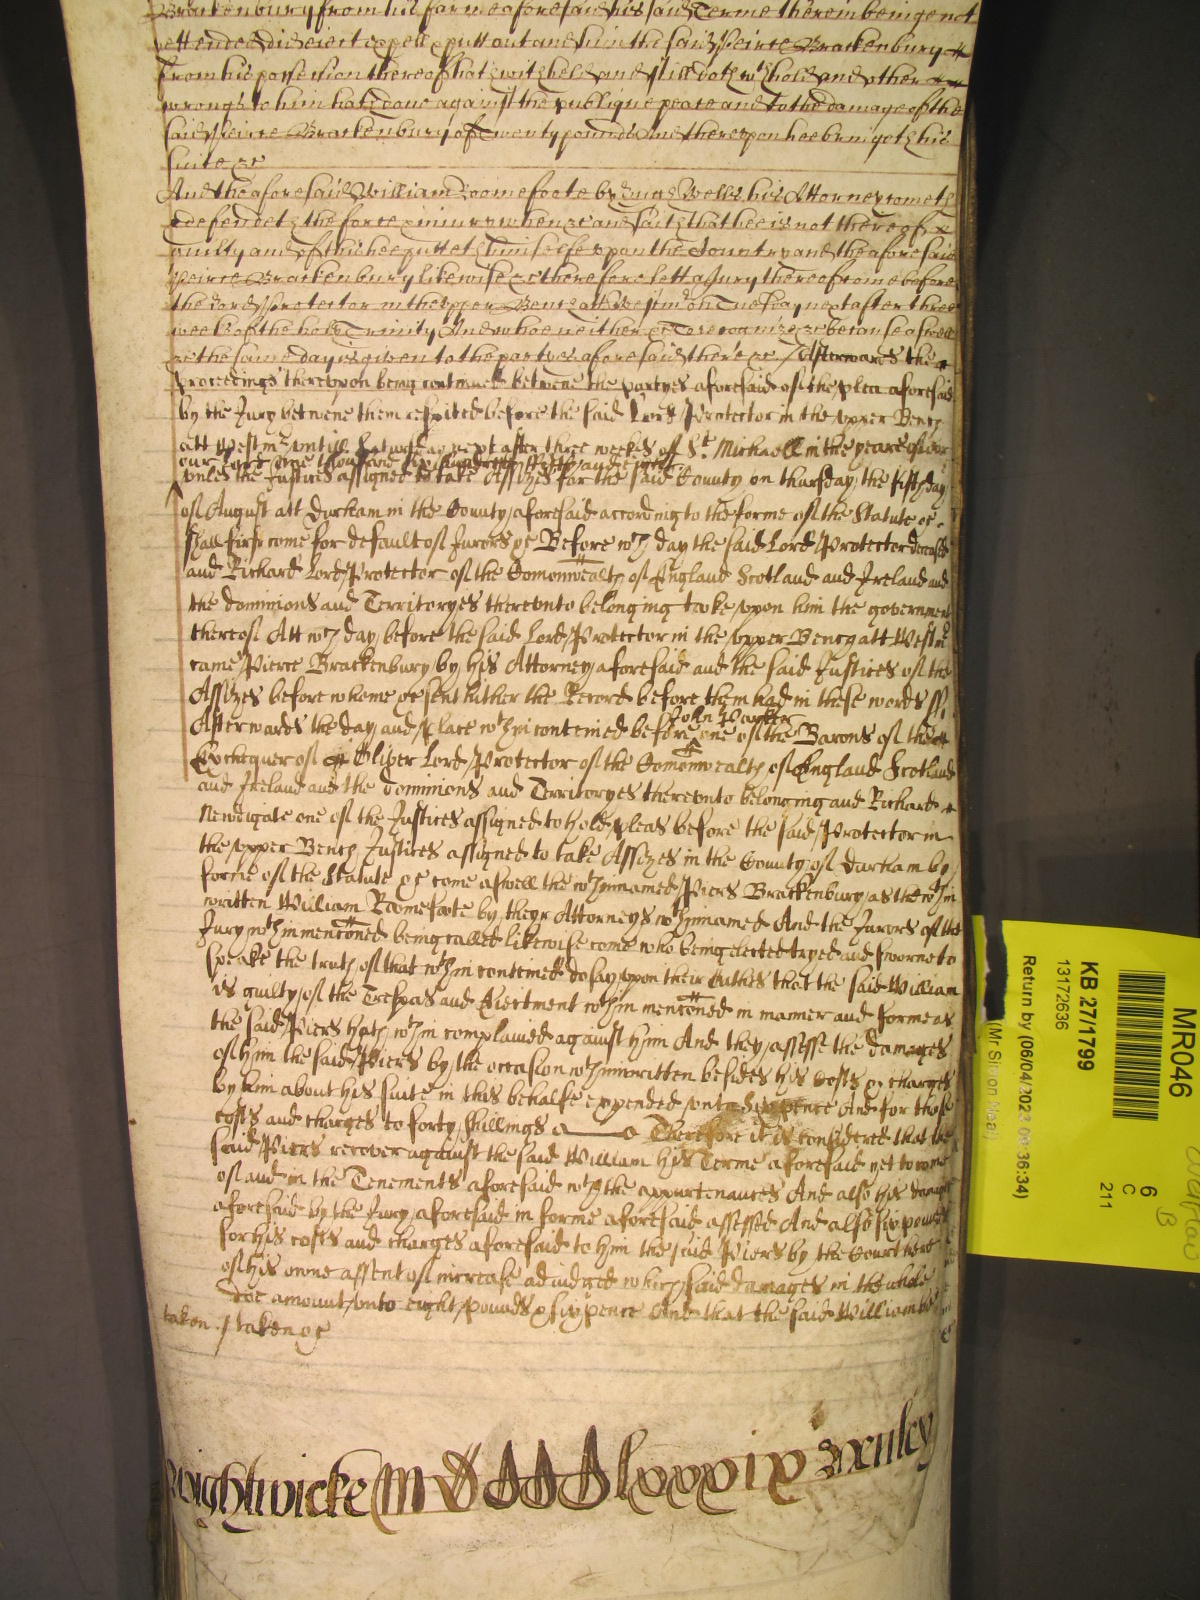 Brackenbury from his farme aforesaid his said Terme therein being not
yett ended did eiect expell & putt out and him the said Peirce Brackenbury
from his possession thereof hath withheld and still doth wthhold and other
wrongs to him hath done against the publique peace and to the damage of the
said Peirce Brackenbury of Twenty pounds And thereupon hee bringeth his
suite &c
And the aforesaid William Roomefoote by Hugh Wells his Attorney cometh
& defendeth the force & iniury when &c and saith that hee is not thereof
guilty and of this hee putteth himselfe vpon the Country and the aforesaid
Peirce Brackenbury likewise &c therefore lett a Jury thereof come before
the Lord Protector in the vpper Bench att Westmr on Tuesday next after three
weeks of the holy Trinity And who neither &c To recognize &c because aswell
&c the same day is given to the partyes aforesaid there &c / Afterwards the
Proceedings therevpon being continued betwene the partyes aforesaid of the plea aforesaid
by the Jury betwene them respited before the said Lord Protector in the vpper Bench
att Westmr vntill Saturday next after three weekes of St Michaell in the yeare of our
our Lord one thousand six hundred fifty and eight
vnles the Justices assigned to take Assizes for the said County on thursday the fifth day
of August att Durham in the County aforesaid according to the forme of the Statute &c
shall first come for default of Jurors &c Before wch day the said Lord Protector deceased
and Richard Lord Protector of the Comonwealth of England Scotland and Ireland and
the dominions and Territoryes therevnto belonging tooke vpon him the government
thereof Att wch day before the said Lord Protector in the vpper Bench att Westmr
came Pierce Brackenbury by his Attorney aforesaid and the said Justices of the
Assizes before whome &c sent hither the Record before them had in these words ss,
Afterwards the day and place wthin conteined before John Parker one of the Barons of the
Exchequer of Oliver Lord Protector of the Comonwealth of England Scotland
and Ireland and the dominions and Territoryes therevnto belonging and Richard
Newdigate one of the Justices assigned to hold pleas before the said Protector in
the vpper Bench Justices assigned to take Assizes in the County of Durham by
forme of the Statute &c come aswell the wthinnamed Piers Brackenbury as the wthin
written William Roomefoote by theyr Attorneys wthinnamed And the Jurors of the
Jury wthin mencioned being called likewise come who being elected tryed and sworne to
speake the truth of that wthin conteined do say vpon their Oathes that the said William
is guilty of the Trespas and Eiectment wthin mencioned in manner and forme as
the said Piers hath wthin complained against him And they assesse the damages
of him the said Piers by the occasion wthinwritten besides his costs & charges
by him about his suite in this behalfe expended vnto sixpence And for those
costs and charges to forty shillings Therefore it is considered that the
said Piers recover against the said William his Terme aforesaid yet to come
of and in the Tenements aforesaid wth the appurtenances And also his damages
aforesaid by the Jury aforesaid in forme aforesaid assessed And also six pounds
for his costs and charges aforesaid to him the said Piers by the Court here
of his owne assent of increase adiudged which said damages in the whole
doe amount vnto eight pounds & sixpence And that the said William be
taken / taken &c
Wightwicke
MR046
KB 27/1799
13172636
Return by (06/04/2023 09:36:34)
(Mr Simon Neal)
6
C
211
B